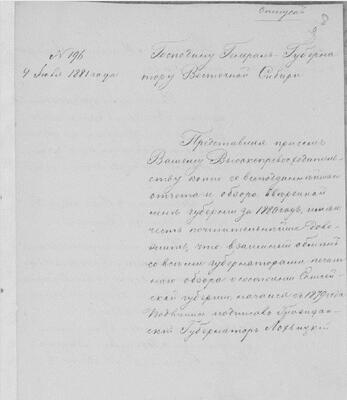 Отпуск
8
№ 196
4 Июля 1881 года
Господину Генерал-Губерна
тору Восточной Сибири
Представляя при семъ
Вашему Высокопревосходитель-
ству копіи со всеподданнѣйшаго
отчета и обзора ввѣренной
мнѣ губерніи за 1880 годъ, имѣю
честь почтительнѣйше доло-
жить, что взаимный обмѣнъ
со всѣми губернаторами печат-
наго обзора о состояніи Енисей-
ской губерніи, начался съ 1879 года
Подлинный подписалъ Граждан-
скій Губернаторъ Лохвицкій